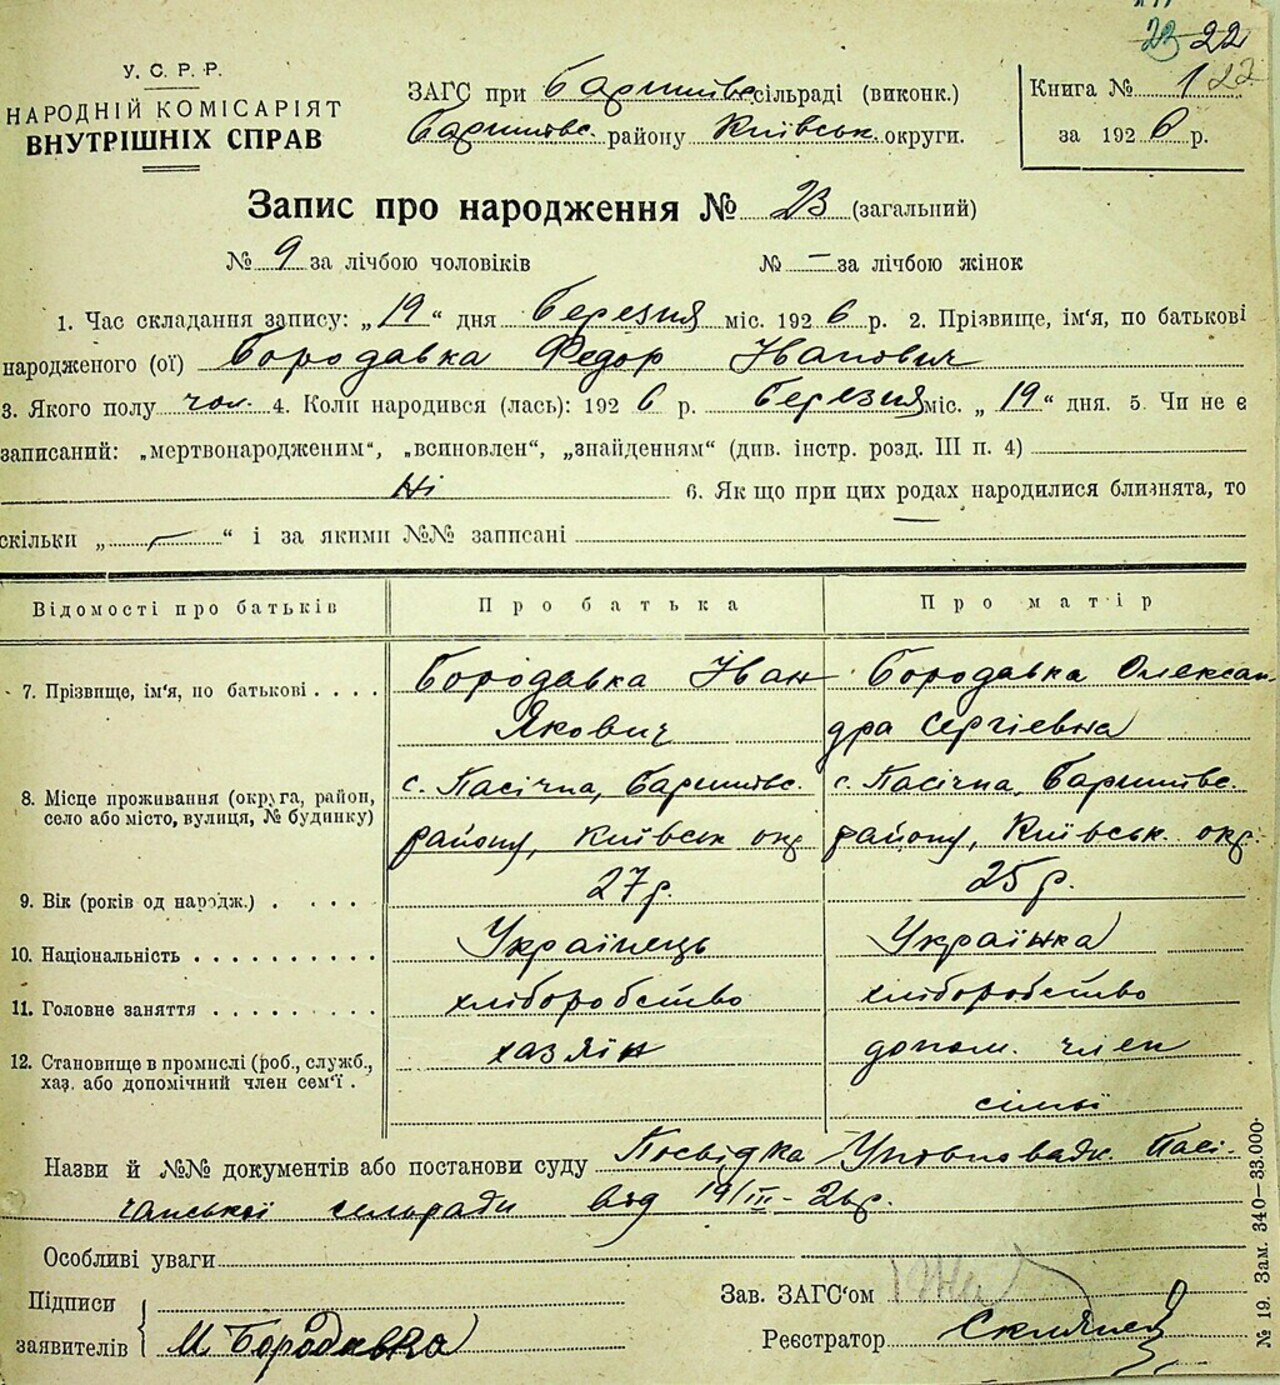 23 22
У. С. Р. Р.
НАРОДНІЙ КОМІСАРІЯТ
ВНУТРІШНІХ СПРАВ
ЗАГС при Баришівс. сільраді (виконк.)
Баришівс. району Київськ. округи.
Книга № 1 22
за 1926 р.
Запис про народження № 23 (загальний)
№ 9 за лічбою чоловіків № — за лічбою жінок
1. Час складання запису: „19“ дня березня міс. 1926 р. 2. Прізвище, ім'я, по батькові
народженого (ої) Бородавка Федор Іванович
3. Якого полу чол. 4. Коли народився (лась): 1926 р. березня міс. „19“ дня. 5. Чи не є
записаний: „мертвонародженим“, „всиновлен“, „знайденням“ (див. інстр. розд. III п. 4)
Ні 6. Як що при цих родах народилися близнята, то
скільки „ — “ і за якими №№ записані —
Відомості про батьків Про батька Про матір
7. Прізвище, ім'я, по батькові . . . . Бородавка Іван Бородавка Олексан-
Якович дра Сергієвна
8. Місце проживання (округа, район, село або місто, вулиця, № будинку) с. Пасічна, Баришівс. с. Пасічна, Баришівс.
району, Київськ окр району, Київськ. окр.
9. Вік (років од народж.) . . . . 27 р. 25 р.
10. Національність . . . . . . . . . . Українець Українка
11. Головне заняття . . . . . . . . . хліборобство хліборобство
12. Становище в промислі (роб., служб., хаз. або допомічний член сем'ї . хазяїн допом. член
сімьї
Назви й №№ документів або постанови суду Посвідка Уповноваж. Пасі-
чанської сельради від 19/III - 26 р.
Особливі уваги
Підписи
заявителів М Бородавка
Зав. ЗАГС'ом
Реєстратор
№ 19. Зам. 340—33.000.